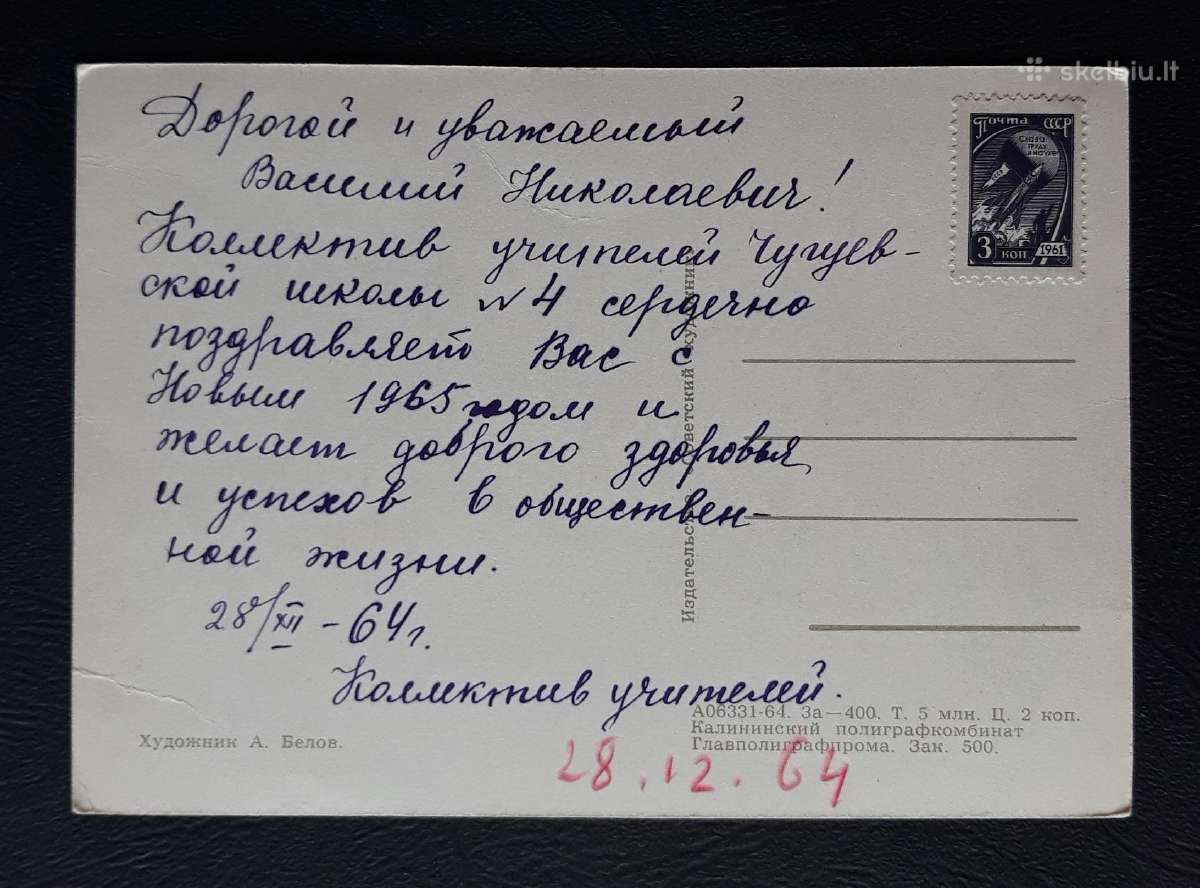 skelbiu.lt
Дорогой и уважаемый
Василий Николаевич!
Коллектив учителей Чугуев-
ской школы N 4 сердечно
поздравляет Вас с
Новым 1965 годом и
желает доброго здоровья
и успехов в обществен-
ной жизни.
28/XII - 64 г.
Коллектив учителей.
Почта СССР
Слава
труду
и науке
3 коп
1961
Издательство советский художник
Художник А. Белов.
А06331-64. За—400. Т. 5 млн. Ц. 2 коп.
Калининский полиграфкомбинат
Главполиграфпрома. Зак. 500.
28.12.64